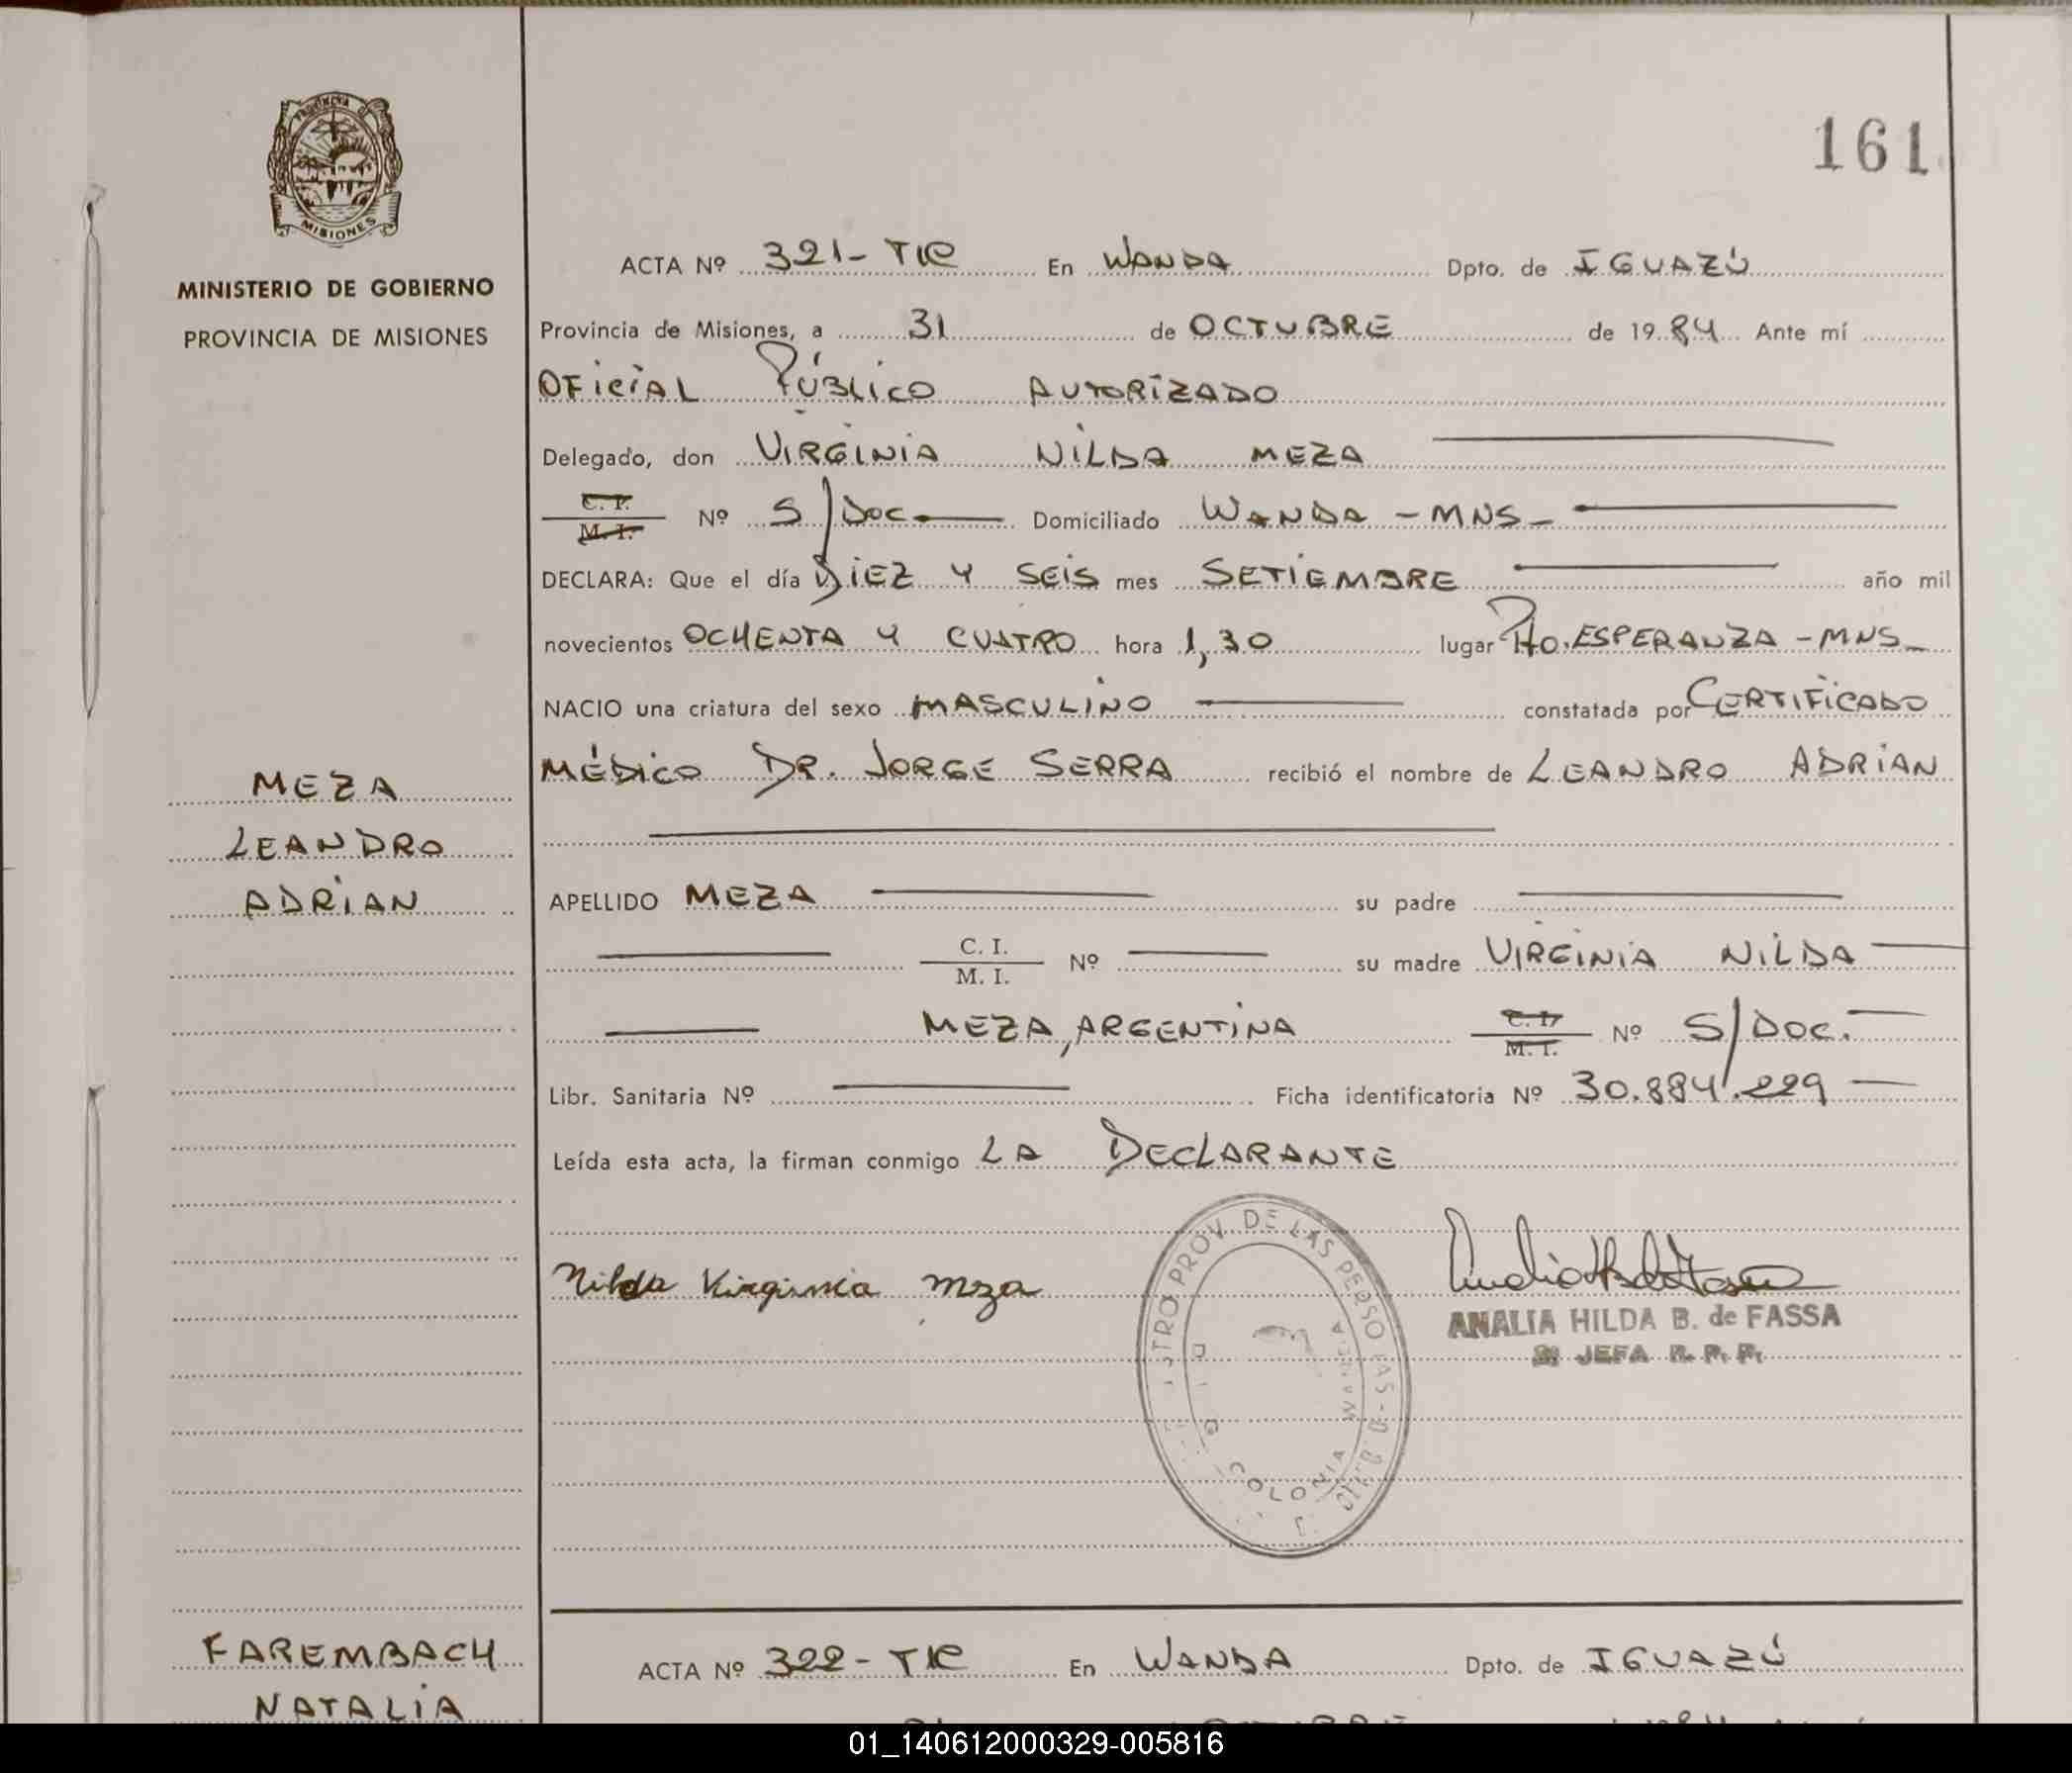 PROVINCIA DE
MISIONES
MINISTERIO DE GOBIERNO
PROVINCIA DE MISIONES
161
ACTA Nº 321- TIR En WANDA Dpto. de IGUAZÚ
Provincia de Misiones, a 31 de OCTUBRE de 1984 Ante mí
OFICIAL PÚBLICO AUTORIZADO
Delegado, don VIRGINIA NILDA MEZA
C. I.
M. I. Nº S/DOC. Domiciliado WANDA - MNS-
DECLARA: Que el día DIEZ Y SEIS mes SETIEMBRE año mil
novecientos OCHENTA Y CUATRO hora 1,30 lugar Pto. ESPERANZA - MNS-
NACIO una criatura del sexo MASCULINO constatada por CERTIFICADO
MÉDICO DR. JORGE SERRA recibió el nombre de LEANDRO ADRIAN
MEZA
LEANDRO
ADRIAN
APELLIDO MEZA su padre
C. I.
M. I. Nº su madre VIRGINIA NILDA
MEZA, ARGENTINA C. I.
M. I. Nº S/DOC.
Libr. Sanitaria Nº Ficha identificatoria Nº 30.884.229
Leída esta acta, la firman conmigo LA DECLARANTE
Nilda Virginia Mza
PROV. DE LAS PERSONAS
COLONIA WANDA
ANALIA HILDA B. de FASSA
JEFA R. P. P.
FAREMBACH
NATALIA
ACTA Nº 322- TIR En WANDA Dpto. de IGUAZÚ
01_140612000329-005816